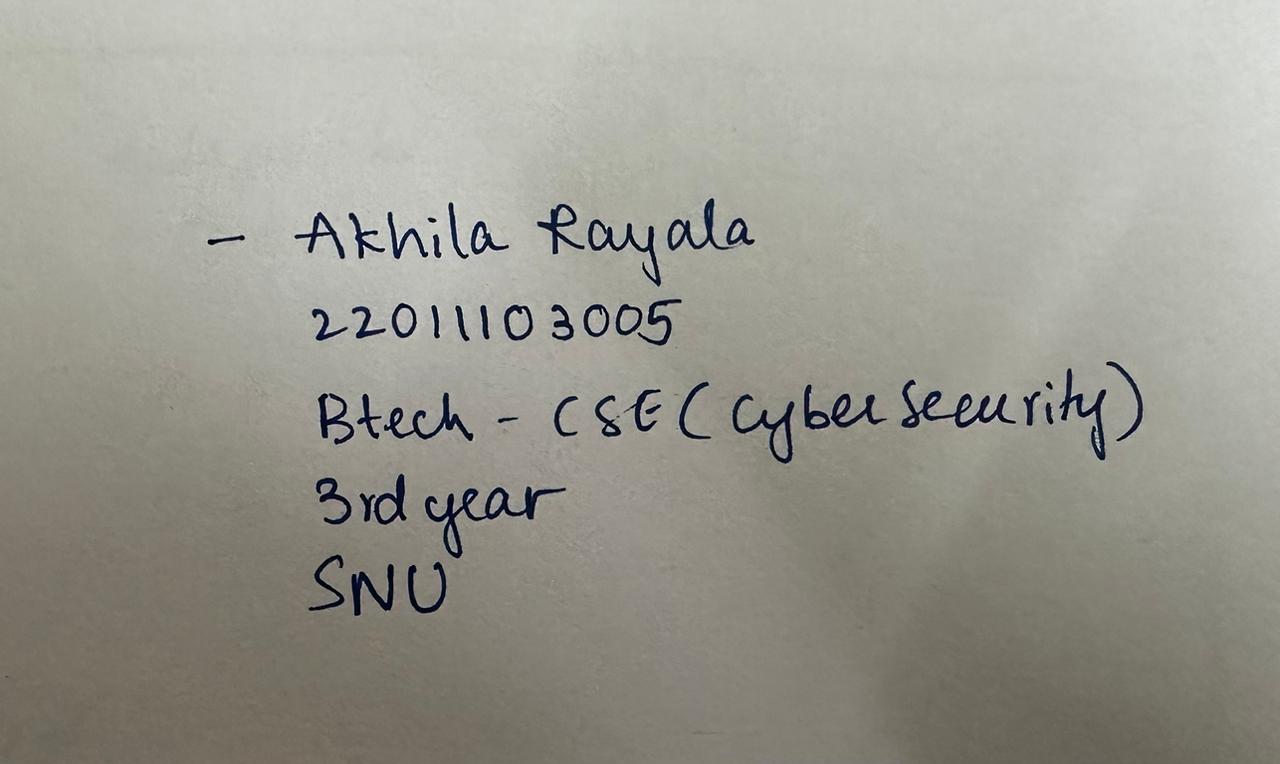 - Akhila Rayala
22011103005
Btech - CSE (Cyber Security)
3rd year
SNU